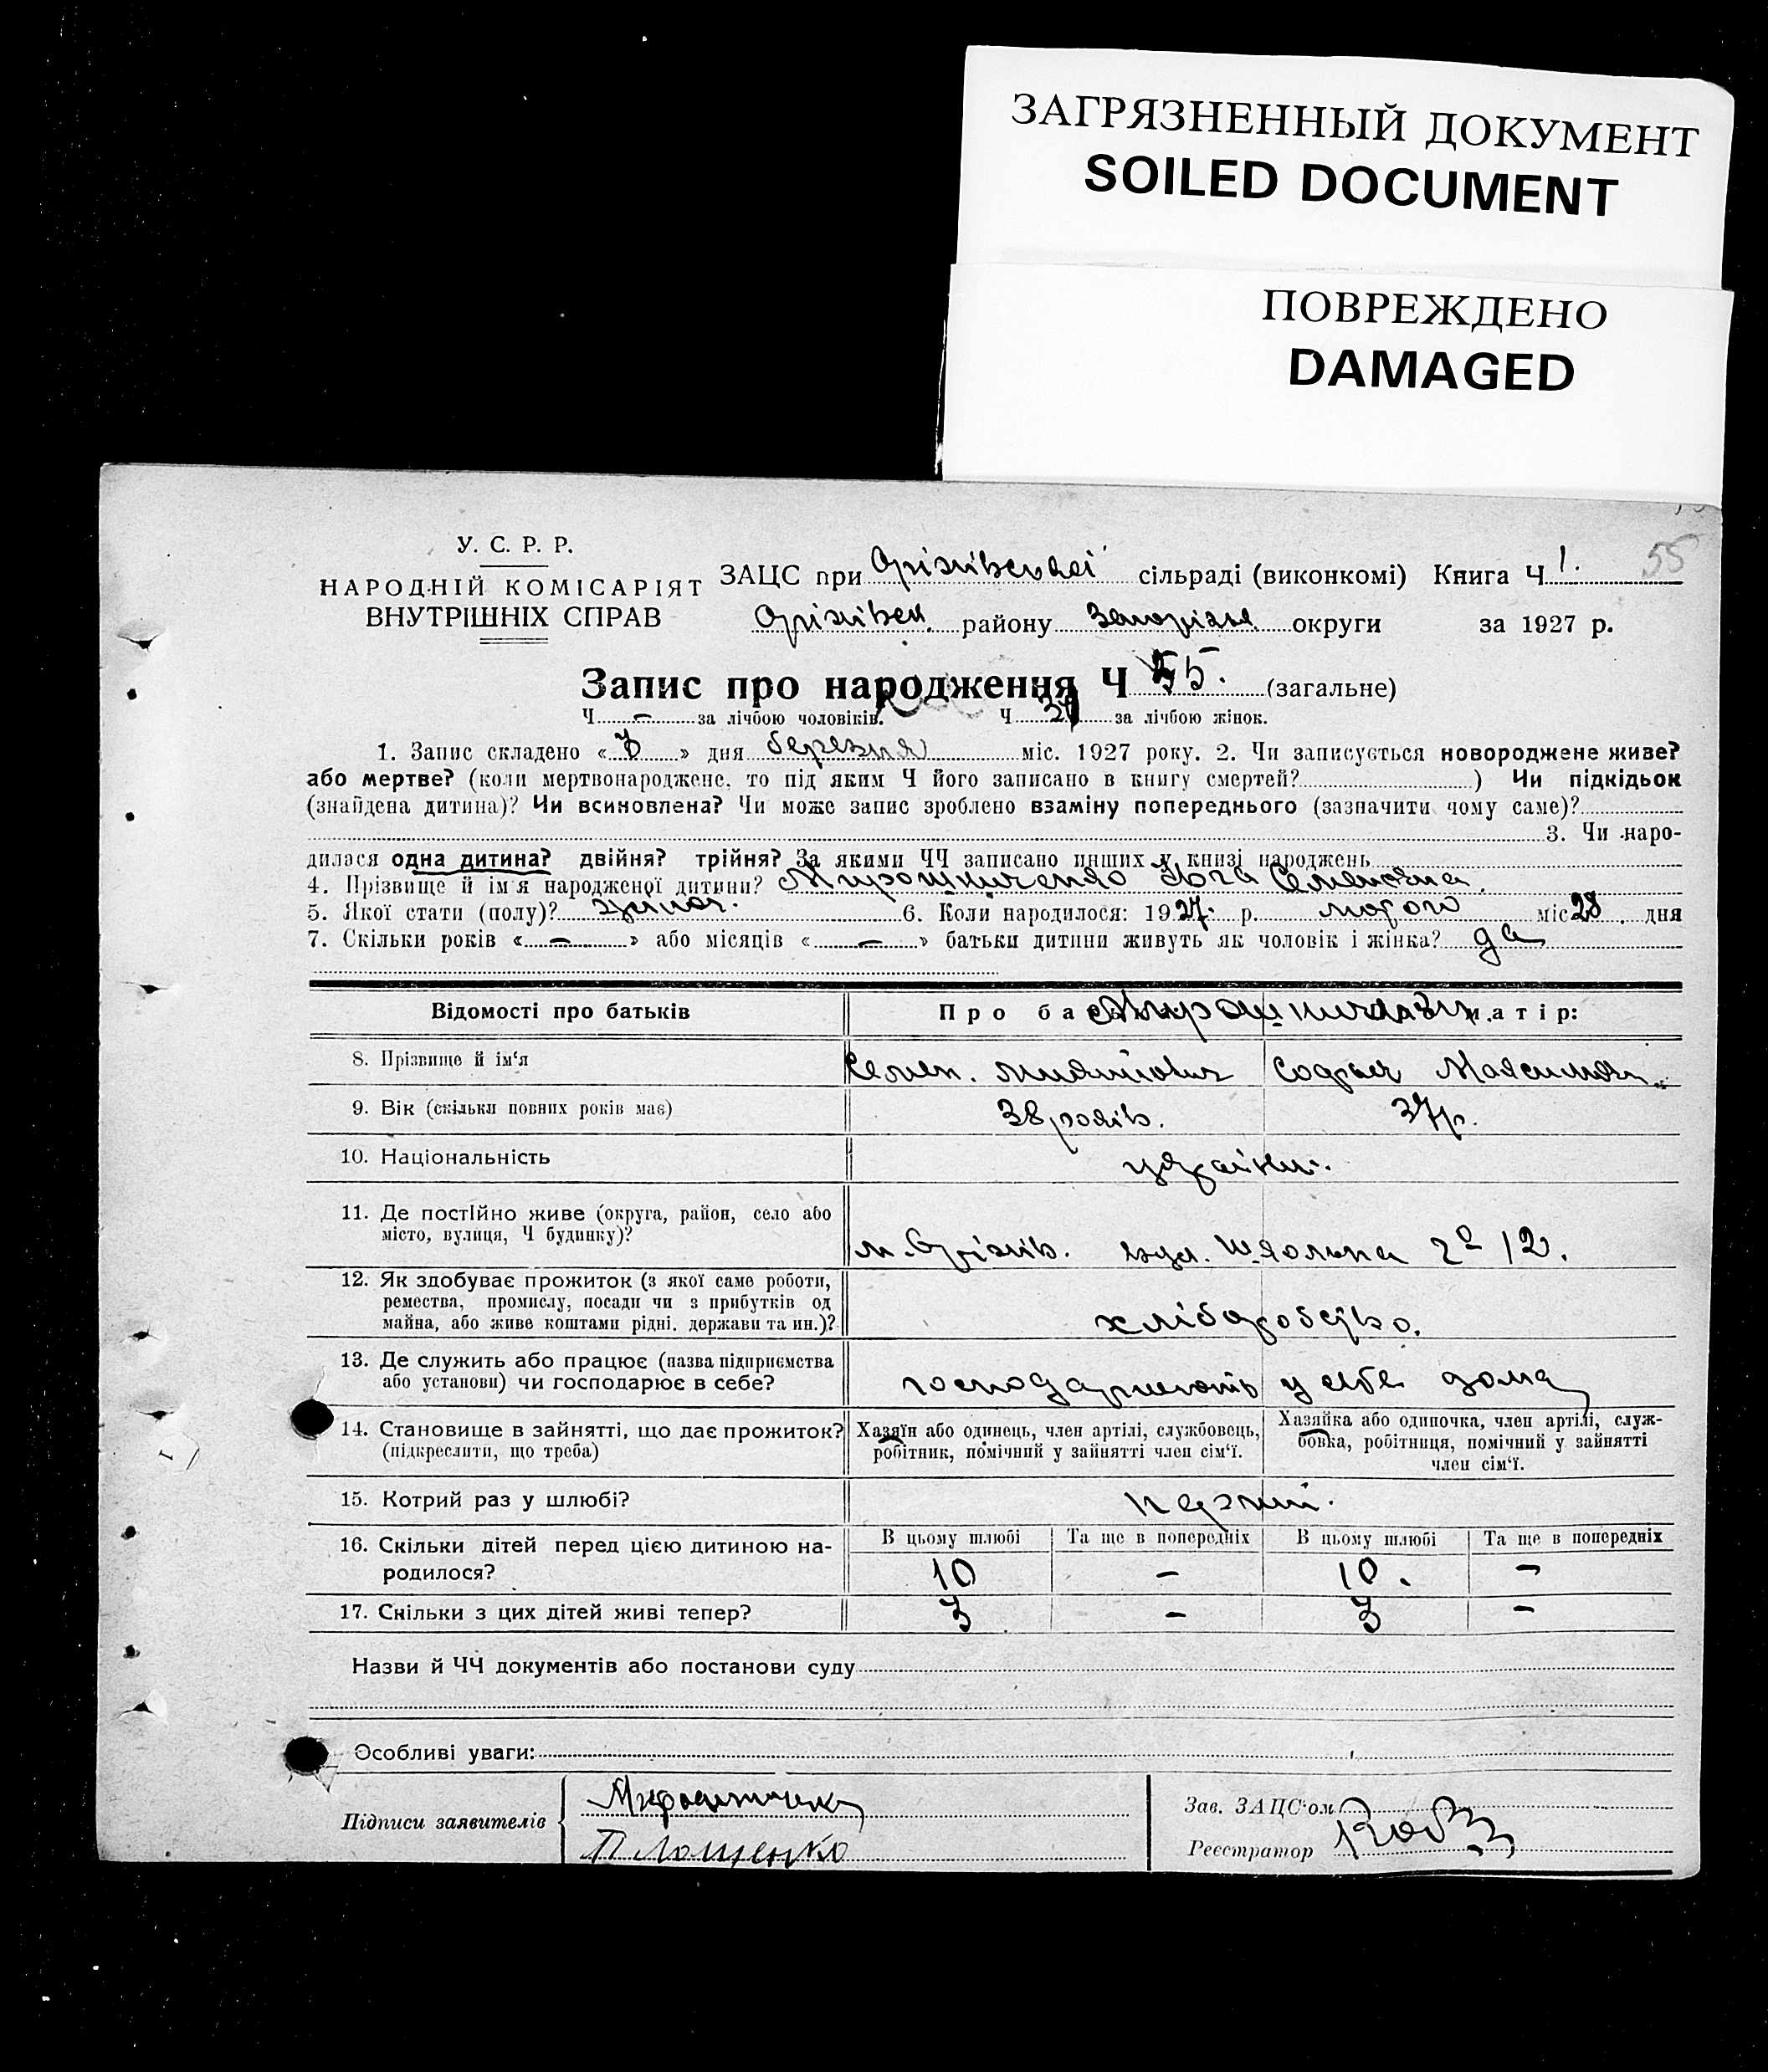 ЗАГРЯЗНЕННЫЙ ДОКУМЕНТ
SOILED DOCUMENT
ПОВРЕЖДЕНО
DAMAGED
55
У. С. Р. Р.
НАРОДНІЙ КОМІСАРІЯТ
ВНУТРІШНІХ СПРАВ
ЗАЦС при Оріхівській сільраді (виконкомі) Книга Ч 1.
Оріхівськ. району Запоріжж округи за 1927 р.
Запис про народження Ч 55. (загальне)
Ч – за лічбою чоловіків. Ч за лічбою жінок.
1. Запис складено « » дня березня міс. 1927 року. 2. Чи записується новороджене живе?
або мертве? (коли мертвонароджене, то під яким Ч його записано в книгу смертей? ) Чи підкідьок
(знайдена дитина)? Чи всиновлена? Чи може запис зроблено взаміну попереднього (зазначити чому саме)?
3. Чи наро-
дилася одна дитина? двійня? трійня? За якими ЧЧ записано инших у книзі народжень
4. Прізвище й ім'я народженої дитини? Мирошниченко Семеновна.
5. Якої стати (полу)? жіноч. 6. Коли народилося: 1927. р. лютого міс 28 дня
7. Скільки років « – » або місяців « – » батьки дитини живуть як чоловік і жінка? да
Відомості про батьків
Про матір:
8. Прізвище й ім'я Семен. Софья Максимовн.
9. Вік (скільки повних років має) 38 років. 37 р.
10. Національність україн.
11. Де постійно живе (округа, район, село або
місто, вулиця, Ч будинку)? м. Оріхів. вул. Школьна 12.
12. Як здобуває прожиток (з якої саме роботи,
ремества, промислу, посади чи з прибутків од
майна, або живе коштами рідні, держави та ин.)? хліборобство.
13. Де служить або працює (назва підприємства
або установи) чи господарює в себе? господарюють у себе дома
14. Становище в зайнятті, що дає прожиток?
(підкреслити, що треба)
Хазяїн або одинець, член артілі, службовець,
робітник, помічний у зайнятті член сім'ї.
Хазяйка або одиночка, член артілі, служ-
бовка, робітниця, помічний у зайнятті
член сім'ї.
15. Котрий раз у шлюбі?
16. Скільки дітей перед цією дитиною на-
родилося?
В цьому шлюбі Та ще в попередніх В цьому шлюбі Та ще в попередніх
10 – 10. –
17. Скільки з цих дітей живі тепер? 3 – 3 –
Назви й ЧЧ документів або постанови суду
Особливі уваги:
Підписи заявителів
Лощенко
Зав. ЗАЦС'ом
Реєстратор